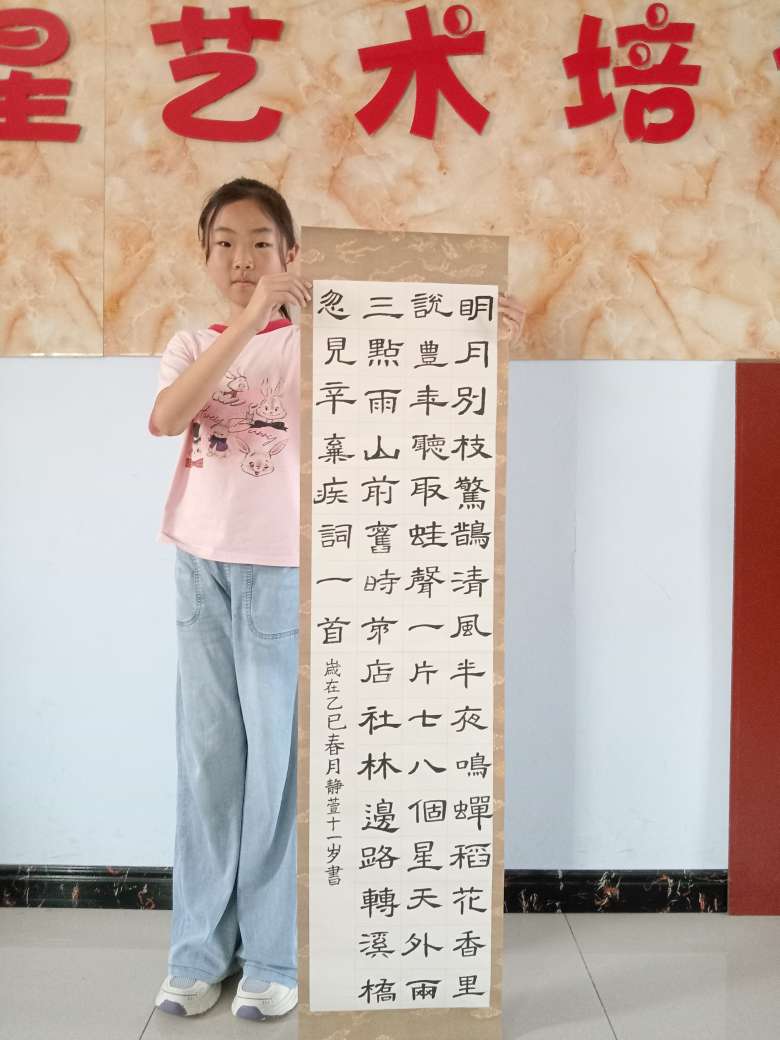 星艺术培
明月別枝驚鵲清風半夜鳴蟬稻花香里
說豊年聽取蛙聲一片七八個星天外兩
三點雨山前舊時茅店社林邊路轉溪橋
忽見辛棄疾詞一首
歲在乙巳春月静萱十一岁書